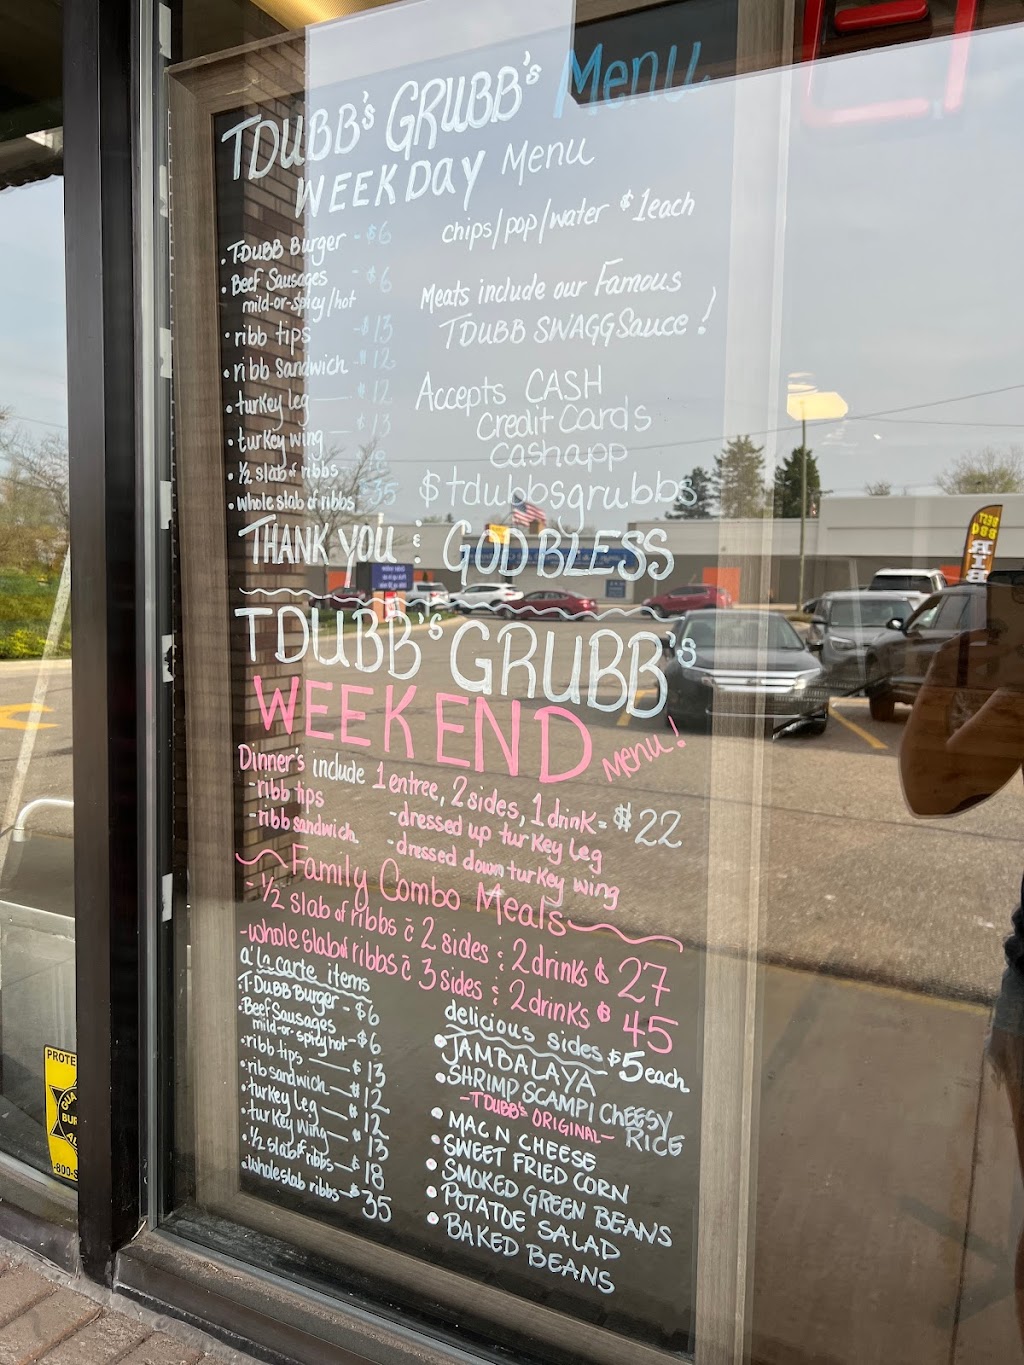 TDUBB's GRUBB's Menu
WEEKDAY Menu
chips/pop/water $1 each
• T-DUBB Burger - $6
• Beef Sausages - $6
mild-or-spicy/hot
• ribb tips - $13
• ribb sandwich - $12
• turkey leg — $12
• turkey wing — $13
• 1/2 slab of ribbs - 18
• whole slab of ribbs - 35
Meats include our Famous
TDUBB SWAGG Sauce!
Accepts CASH
Credit Cards
cashapp
$tdubbsgrubbs
THANK YOU & GOD BLESS
TDUBB's GRUBB's
WEEKEND
Menu!
Dinner's include 1 entree, 2 sides, 1 drink = $22
- ribb tips
- ribb sandwich
- dressed up turkey leg
- dressed down turkey wing
Family Combo Meals
- 1/2 slab of ribbs c̄ 2 sides & 2 drinks $27
- whole slab of ribbs c̄ 3 sides & 2 drinks $45
a' la carte items
• T-DUBB Burger - $6
• Beef Sausages
mild-or-spicy/hot - $6
• ribb tips — $13
• rib sandwich — $12
• turkey leg — $12
• turkey wing — $13
• 1/2 slab of ribbs — $18
• whole slab ribbs - $35
delicious sides $5 each
• JAMBALAYA
• SHRIMP SCAMPI CHEESY
RICE
- TDUBB's ORIGINAL -
• MAC N CHEESE
• SWEET FRIED CORN
• SMOKED GREEN BEANS
• POTATOE SALAD
• BAKED BEANS